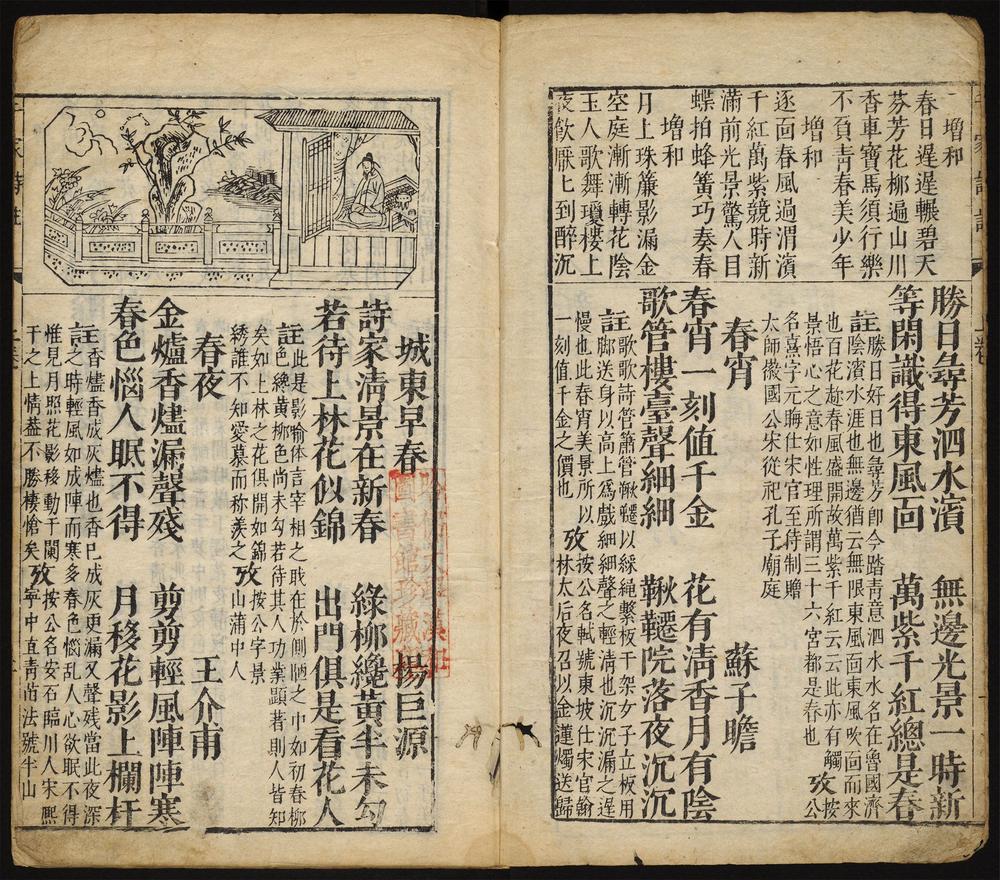 增和
春日遲遲輾碧天
芬芳花柳遍山川
香車寶馬須行樂
不負靑春美少年
增和
逐靣春風過渭濱
千紅萬紫競時新
滿前光景驚人目
蝶拍蜂簧巧奏春
增和
月上珠簾影漏金
空庭漸漸轉花陰
玉人歌舞瓊樓上
夜飲厭厭到醉沉
勝日尋芳泗水濱 無邊光景一時新
等閑識得東風靣 萬紫千紅總是春
註勝日好日也尋芳卽今踏靑意泗水水名在魯國濟
陰濱水涯也無邊猶云無限東風靣東風吹靣而來
也百花趂春風盛開故萬紫千紅云云此亦有觸
景悟心之意如性理所謂三十六宮都是春也 攷按公
名熹字元晦仕宋官至待制贈
太師徽國公宋從祀孔子廟庭
春宵 蘇子瞻
春宵一刻值千金 花有淸香月有陰
歌管樓臺聲細細 鞦韆院落夜沉沉
註歌歌詩管簫管鞦韆以綵繩繫板于架女子立板用
脚送身以高上爲戲細細聲之輕淸也沉沉漏之遲
慢也此春宵美景所以 攷按公名軾號東坡仕宋官翰
一刻值千金之價也 林太后夜召以金蓮燭送歸
城東早春 楊巨源
詩家淸景在新春 綠柳纔黃半未勻
若待上林花似錦 出門俱是看花人
註此是影喻体言宰相之耿在於側陋之中如初春柳
色纔黃柳色尚未勻若待其人功業顯著則人皆知
矣如上林之花俱開如錦 攷按公字景
綉誰不知愛慕而称羡之 山蒲中人
春夜 王介甫
金爐香燼漏聲殘 剪剪輕風陣陣寒
春色惱人眠不得 月移花影上欄杆
註香燼香成灰燼也香已成灰更漏又聲残當此夜深
之時輕風如成陣而寒多春色惱乱人心欲眠不得
惟見月照花影移動于闌 攷按公名安石臨川人宋熙
干之上情葢不勝棲愴矣 寧中宜靑苗法號半山